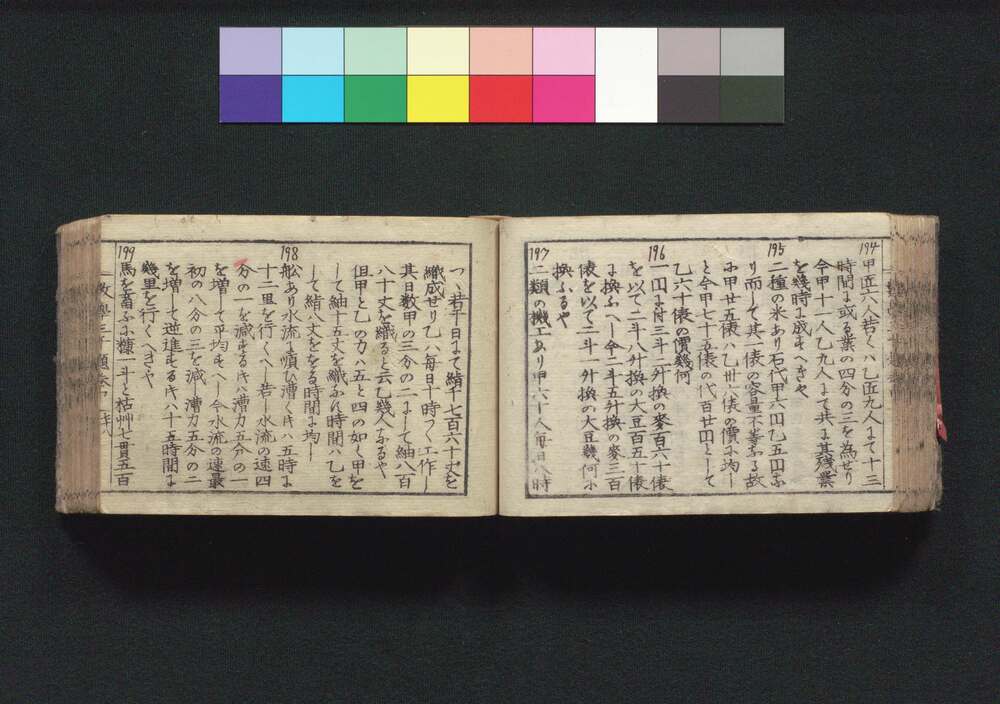 194
甲匠六人若くハ乙匠九人よて十三
時間よ或る業の四分の三を為せり
今甲十一人乙九人よて共よ其残業
を幾時よ成すへきや
195
二種の米あり石代甲六円乙五円な
り而して其一俵の容量不等なる故
に甲廿五俵ハ乙卅六俵の價に均し
と今甲七十五俵の代百廿円として
乙六十俵の價幾何
196
一円よ付三斗一升換の麥百六十俵
を以て二斗八升換の大豆百五十俵
よ換ふへし今二斗五升換の麥三百
俵を以て二斗一升換の大豆幾何に
換ふるや
197
二類の機工あり甲六十人毎日八時
つゝ若干日よて絹千七百六十丈を
織成せり乙ハ毎日十時つく工作し
其日数甲の三分の二よして紬八百
八十丈を織ると云乙幾人なるや
但甲と乙の力ハ五と四の如く甲を
して紬十五丈を織ふ時間ハ乙を
して絹八丈ををる時間よ均し
198
舩あり水流よ順ひ漕く時ハ五時よ
十二里を行くへし若し水流の速四
分の一を減する時ハ漕力五分の一
を増して平均すへし今水流の速最
初の八分の三を減し漕力五分の二
を増して逆進する時ハ十五時間よ
幾里を行くへきや
199
馬を畜ふに糠一斗と枯艸七貫五百